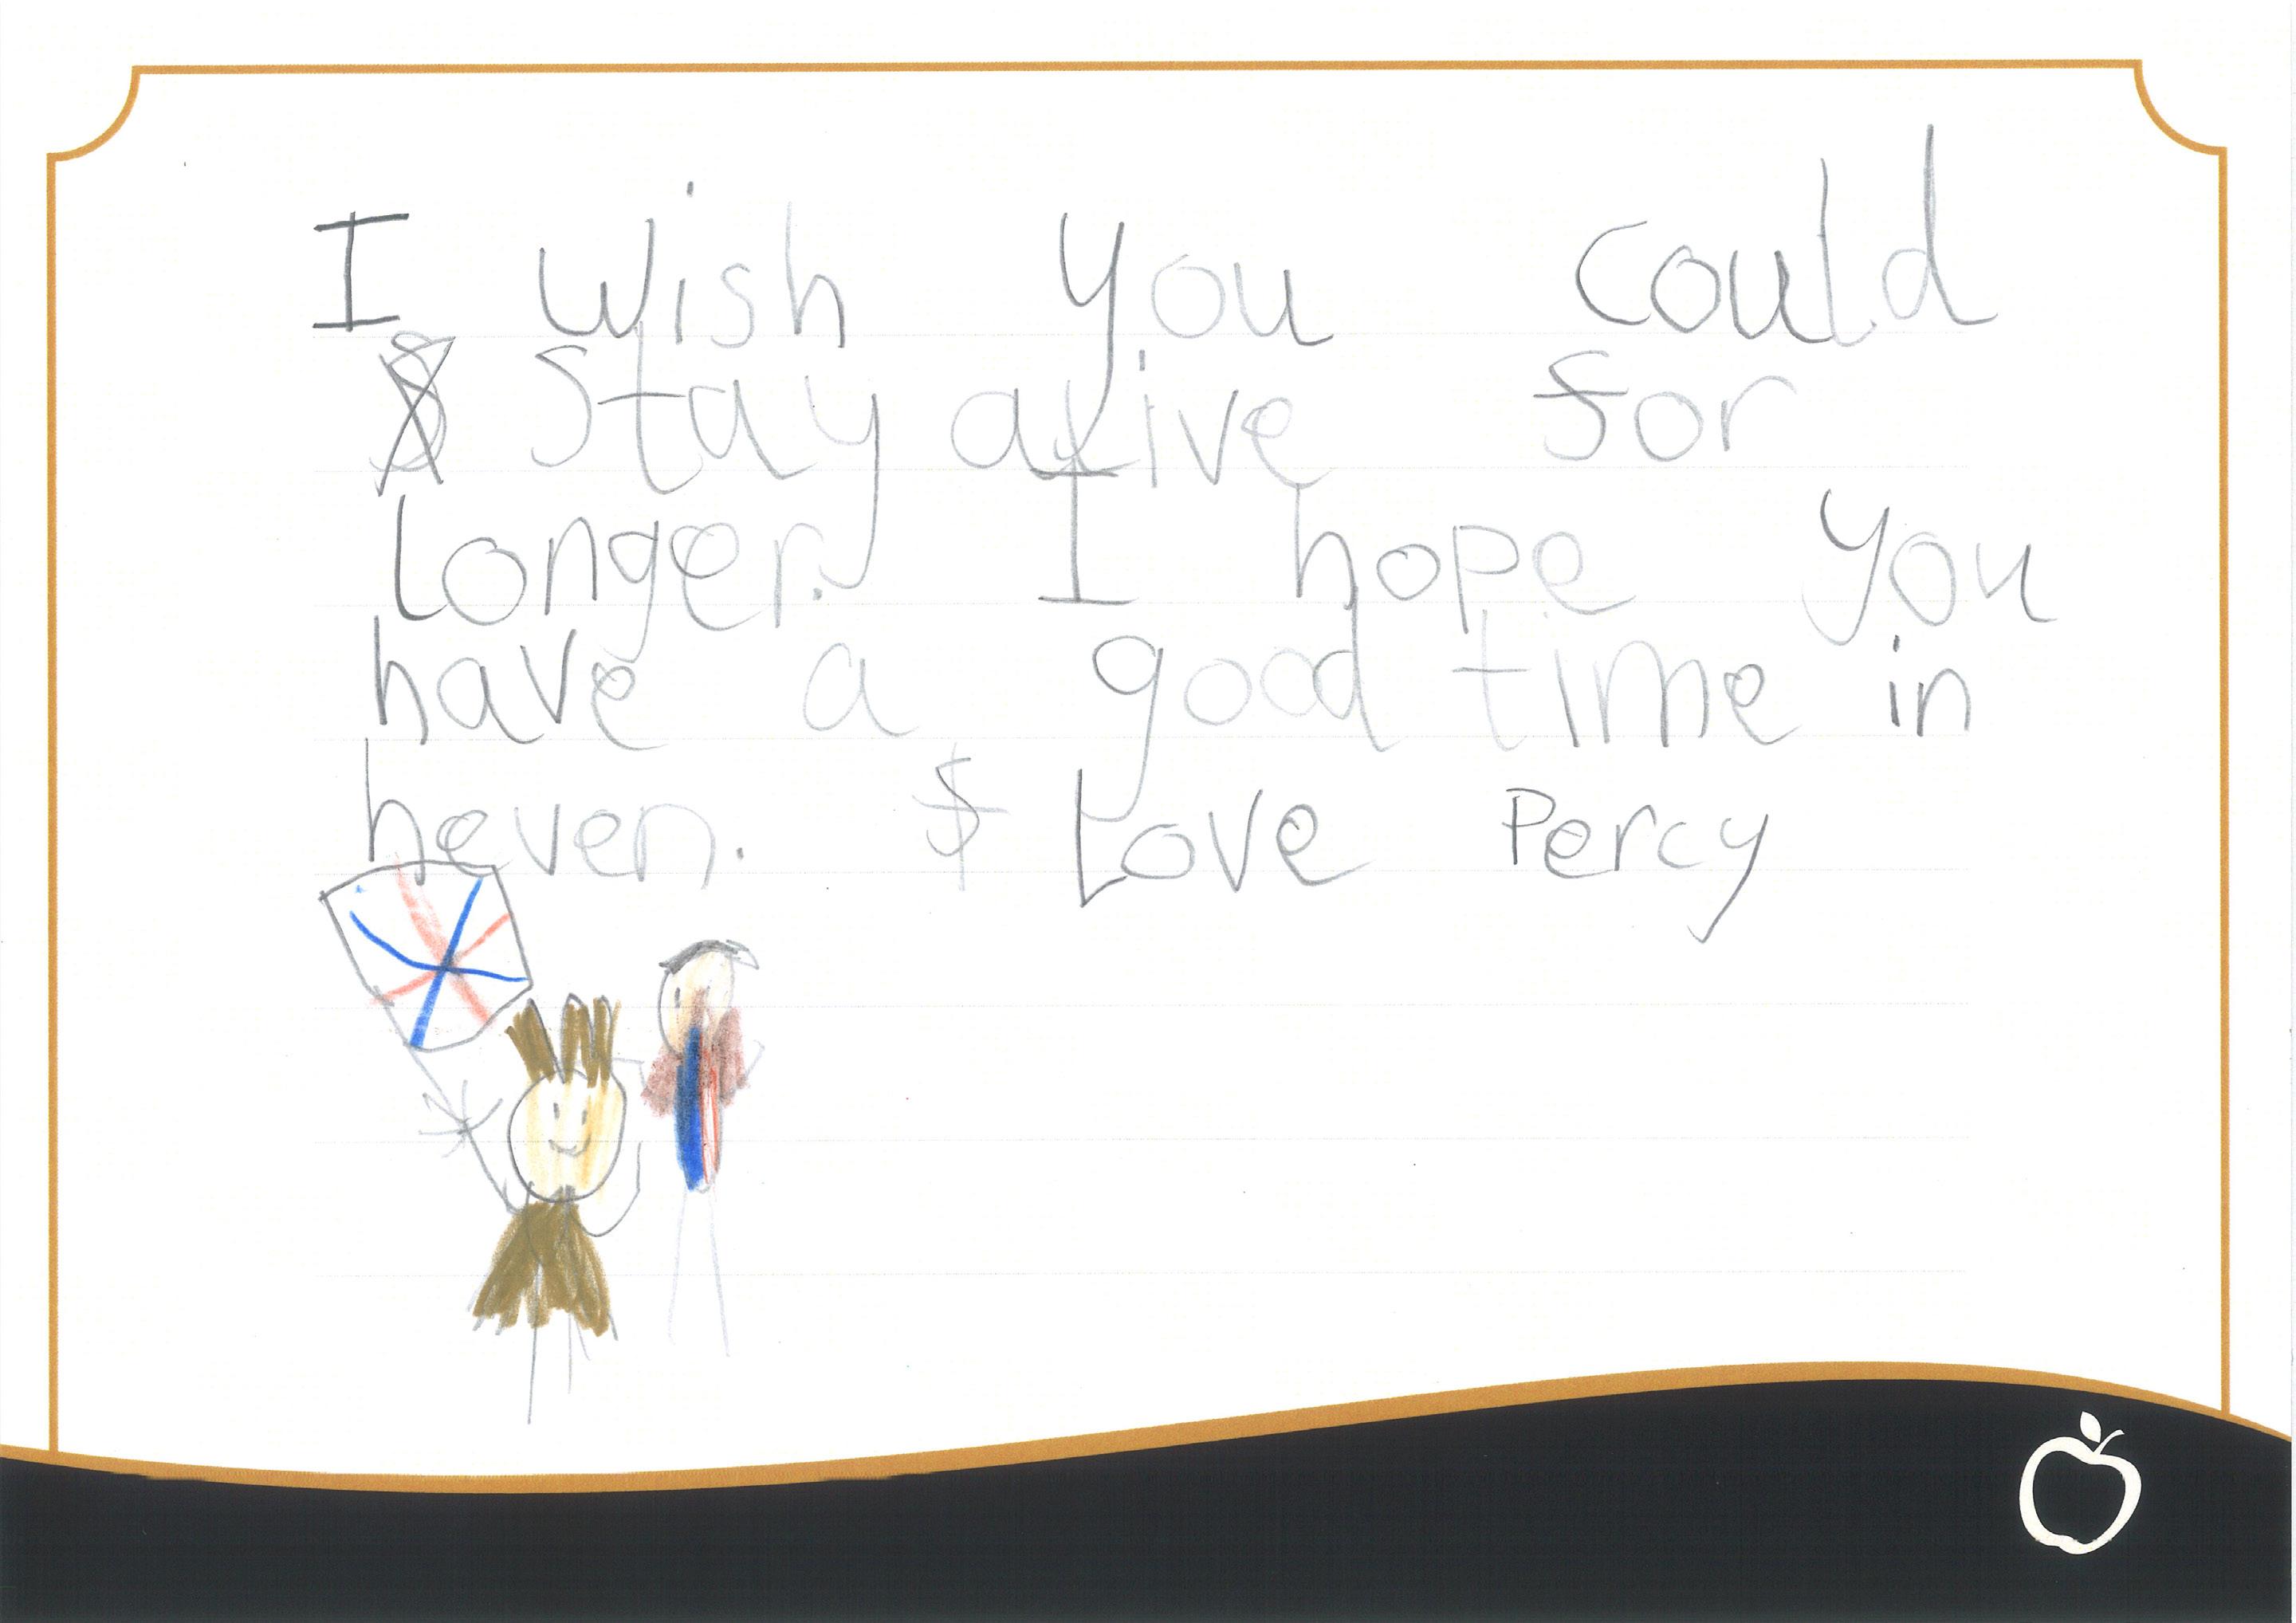 I wish you could
stay alive for
longer. I hope you
have a good time in
heven. Love Percy